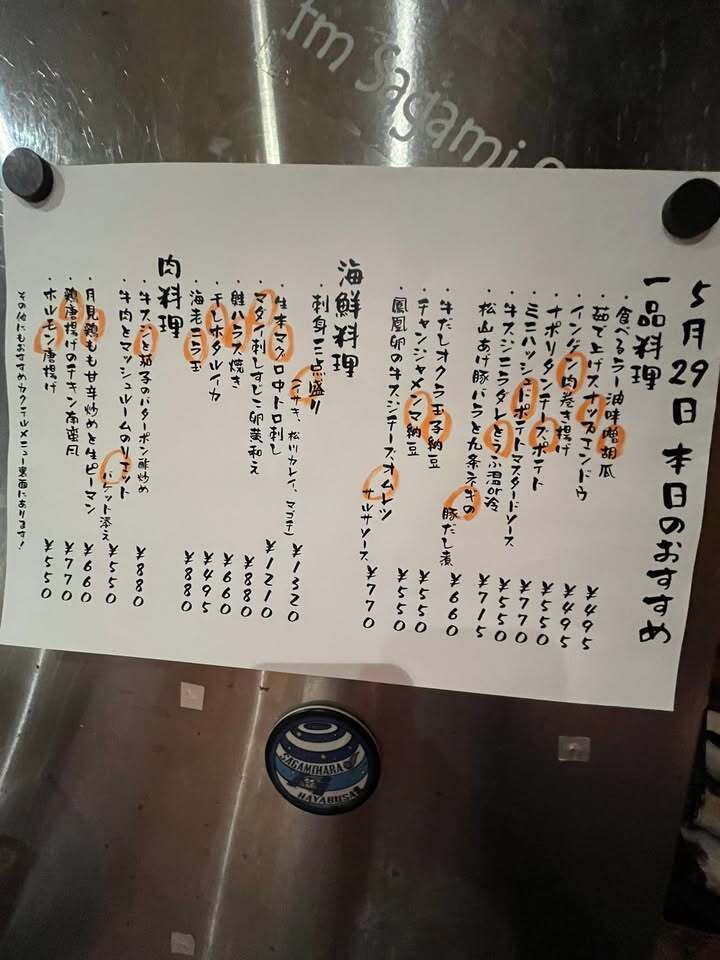 fm Sagami
5月29日 本日のおすすめ
一品料理
・食べるラー油味噌胡瓜 ¥495
・茹で上げスナップエンドウ ¥495
・インゲン肉巻き揚げ ¥550
・ナポリタンチーズポテト ¥770
・ミニハッシュドポテトマスタードソース ¥550
・牛スジニラダレとうふ温or冷 ¥715
・松山あげ豚バラと九条ネギの豚だし煮 ¥660
・牛だしオクラ玉子納豆 ¥550
・チャンジャメンマ納豆 ¥550
・鳳凰卵の牛スジチーズオムレツ サルサソース ¥770
海鮮料理
・刺身三点盛り(イサキ、松川カレイ、マゴチ) ¥1320
・生本マグロ中トロ刺し ¥1210
・マダイ刺しすじこ卵黄和え ¥880
・鮭ハラス焼き ¥660
・干しホタルイカ ¥495
・海老ニラ玉 ¥880
肉料理
・牛スジと茄子のバターポン酢炒め ¥880
・牛肉とマッシュルームのリエット バゲット添え ¥550
・月見鶏もも甘辛炒めと生ピーマン ¥660
・鶏唐揚げのチキン南蛮風 ¥770
・ホルモン唐揚げ ¥550
その他にもおすすめカクテルメニュー裏面にあります!
SAGAMIHARA
HAYABUSA